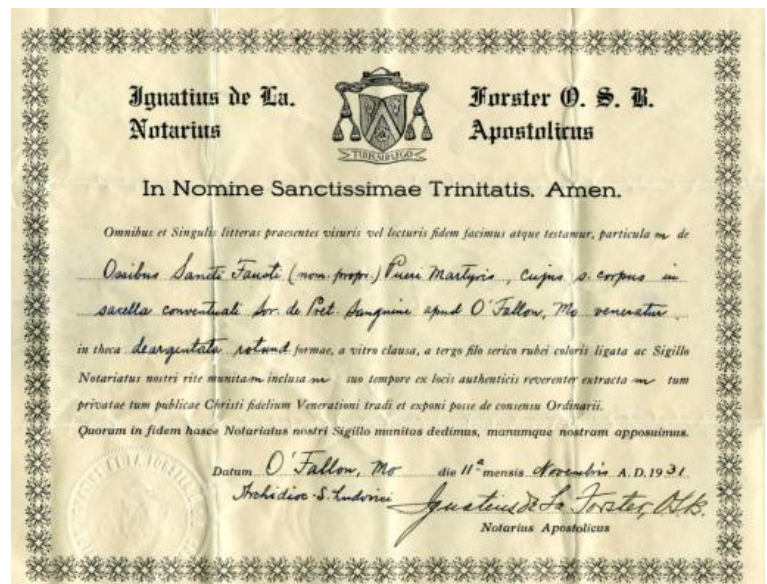 Ignatius de La. Forster O. S. B.
Notarius Apostolicus
In Nomine Sanctissimae Trinitatis. Amen.
Omnibus et Singulis litteras praesentes visuris vel lecturis fidem facimus atque testamur, particula m de
Ossibus Sancti Fausti (nom. propr.) Pueri Martyris, cujus s. corpus in
sacella conventuali Sor. de Pret. Sanguine apud O'Fallon, Mo veneratur
in theca deargentata rotund formae, a vitro clausa, a tergo filo serico rubei coloris ligata ac Sigillo
Notariatus nostri rite munitam inclusa m suo tempore ex locis authenticis reverenter extracta m tum
privatae tum publicae Christi fidelium Venerationi tradi et exponi posse de consensu Ordinarii.
Quorum in fidem hasce Notariatus nostri Sigillo munitas dedimus, manumque nostram apposuimus.
Datum O'Fallon, Mo die 11ª mensis Novembris A. D. 1931
Archidioc. S. Ludovici Ignatius de La Forster, O.S.B.
Notarius Apostolicus